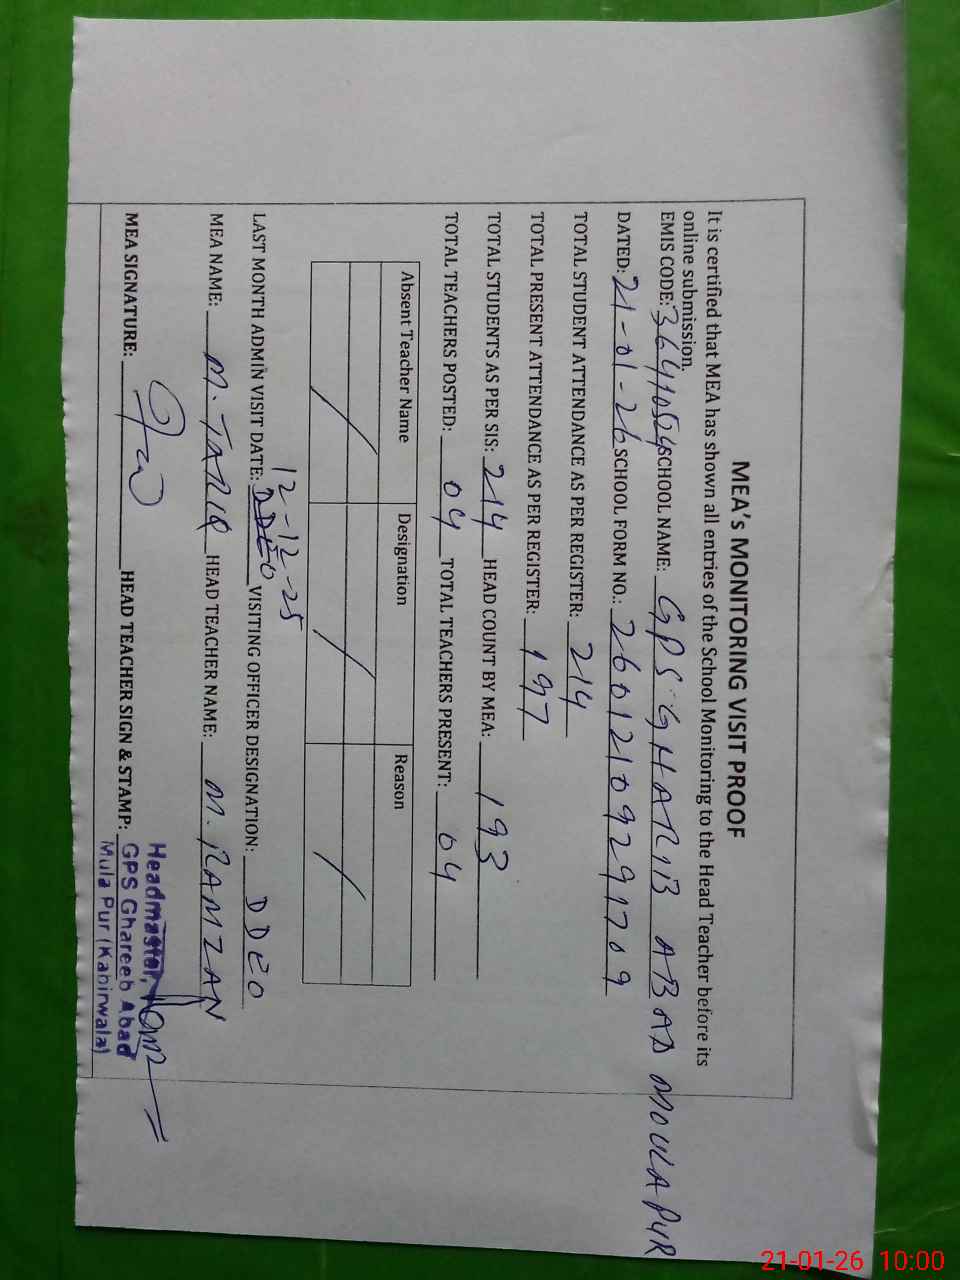 MEA's MONITORING VISIT PROOF
It is certified that MEA has shown all entries of the School Monitoring to the Head Teacher before its
online submission.
EMIS CODE: SCHOOL NAME: GPS GHARIB ABAD MOULA PUR
DATED: 21-01-26 SCHOOL FORM NO.: 26012109291709
TOTAL STUDENT ATTENDANCE AS PER REGISTER: 214
TOTAL PRESENT ATTENDANCE AS PER REGISTER: 197
TOTAL STUDENTS AS PER SIS: 214 HEAD COUNT BY MEA: 193
TOTAL TEACHERS POSTED: 04 TOTAL TEACHERS PRESENT: 04
Absent Teacher Name Designation Reason
12-12-25
LAST MONTH ADMIN VISIT DATE: VISITING OFFICER DESIGNATION: DDEO
MEA NAME: M. TARIQ HEAD TEACHER NAME: M. RAMZAN
MEA SIGNATURE: HEAD TEACHER SIGN & STAMP:
Headmaster,
GPS Ghareeb Abad
Mula Pur (Kabirwala)
21-01-26 10:00